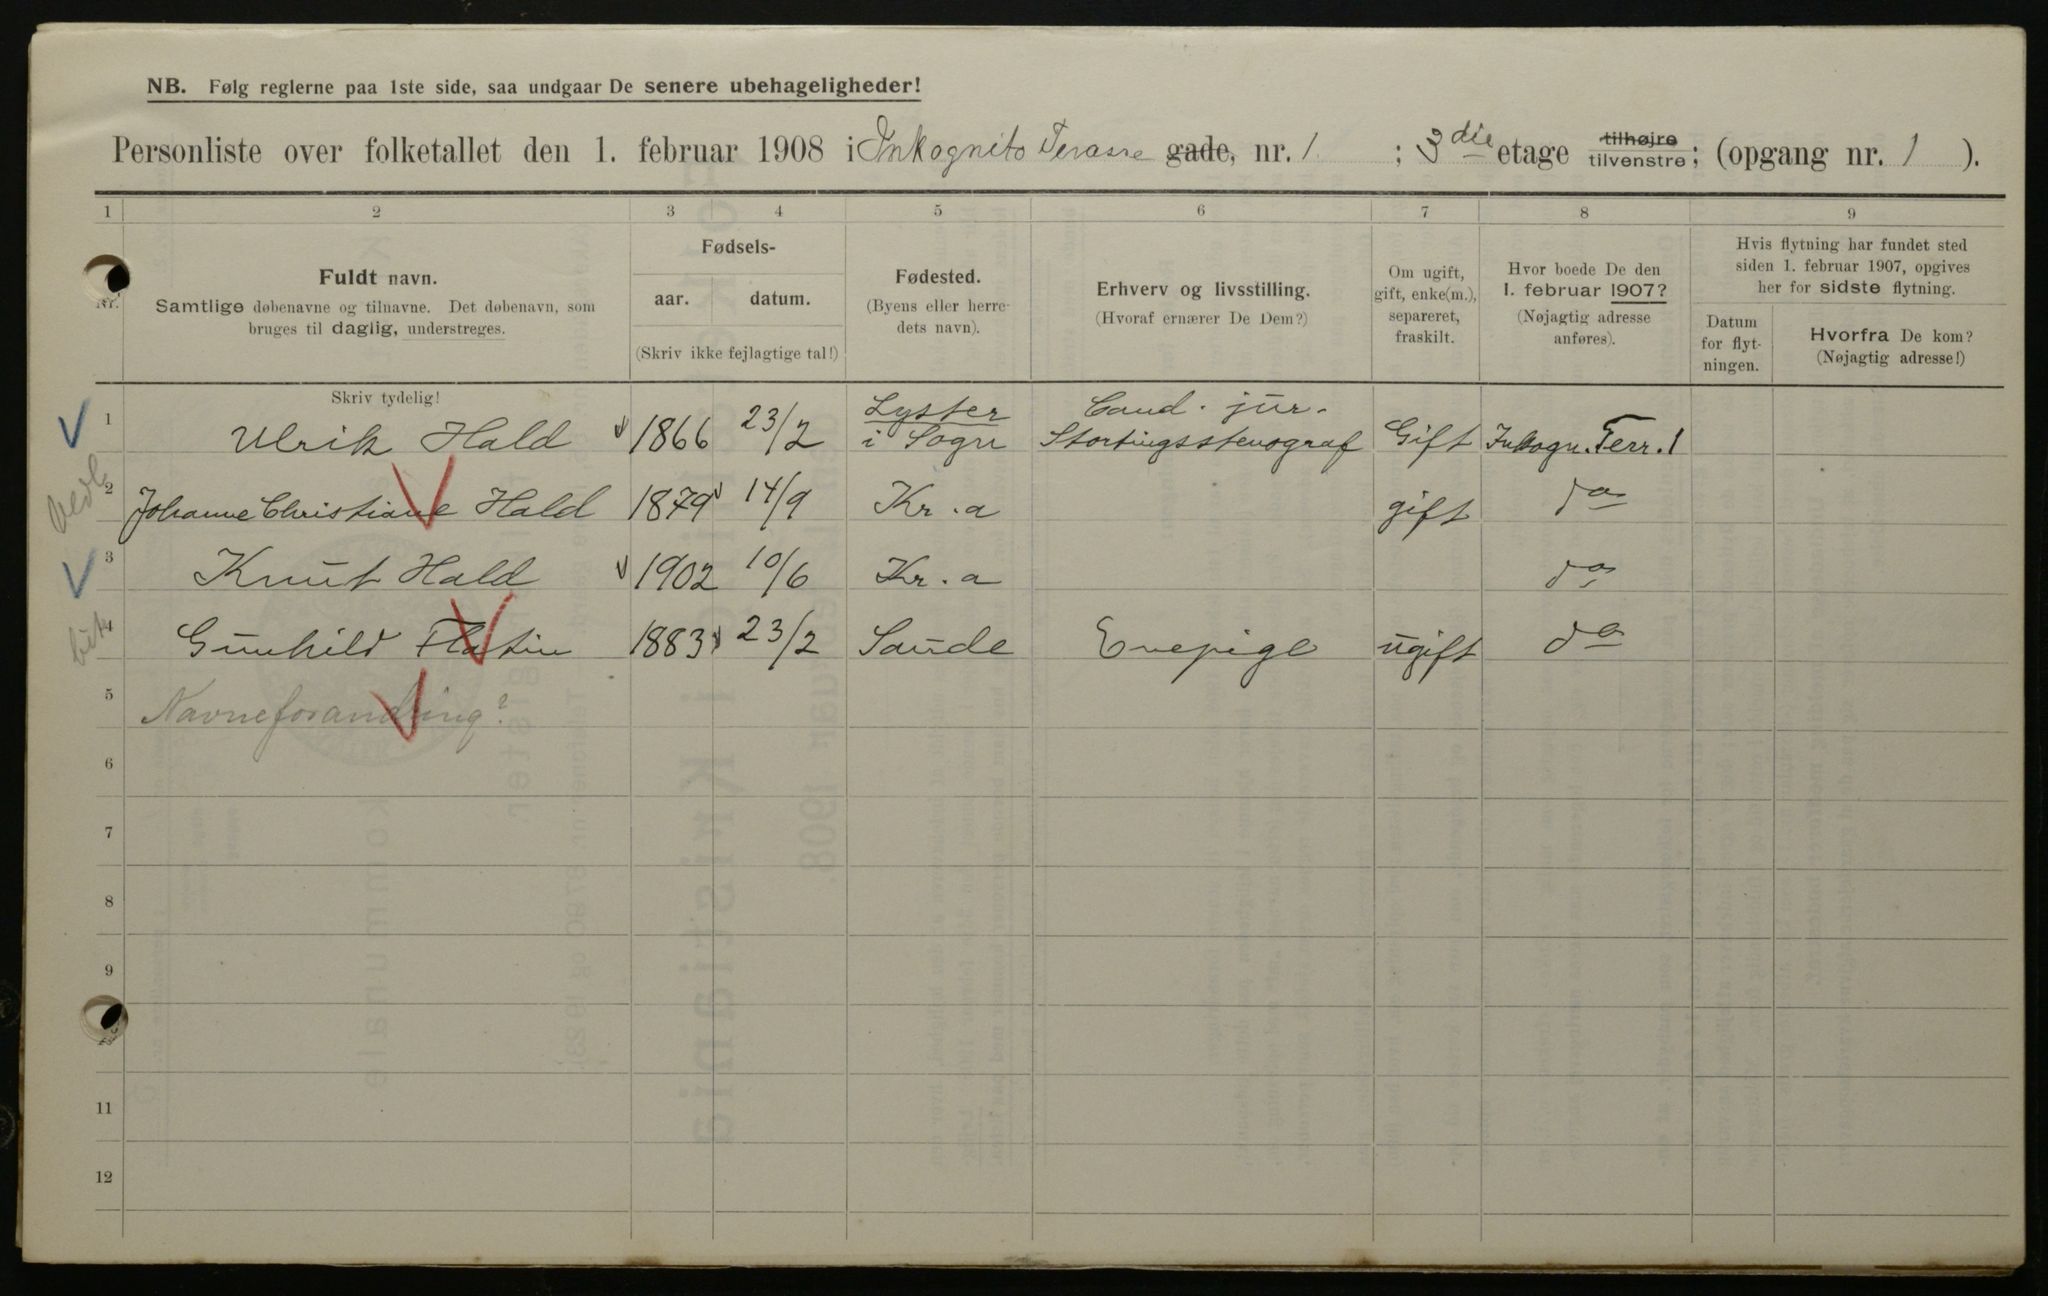 NB. Følg reglerne paa 1ste side, saa undgaar De senere ubehageligheder!
Personliste over folketallet den 1. februar 1908 i Inkognito Terasse gade, nr. 1 ; 3die etage tilhøjre tilvenstre; (opgang nr. 1 ).
1 2 3 4 5 6 7 8 9
Nr.
Fuldt navn.
Samtlige døbenavne og tilnavne. Det døbenavn, som
bruges til daglig, understreges.
Fødsels-
aar. datum.
(Skriv ikke fejlagtige tal!)
Fødested.
(Byens eller herre-
dets navn).
Erhverv og livsstilling.
(Hvoraf ernærer De Dem?)
Om ugift,
gift, enke(m.),
separeret,
fraskilt.
Hvor boede De den
1. februar 1907?
(Nøjagtig adresse
anføres).
Hvis flytning har fundet sted
siden 1. februar 1907, opgives
her for sidste flytning.
Datum
for flyt-
ningen.
Hvorfra De kom?
(Nøjagtig adresse!)
Skriv tydelig!
1 Ulrik Hald 1866 23/2 Lyster i Sogn Cand. jur. Stortingsstenograf Gift Inkogn. Terr. 1
2 Johanne Christiane Hald 1879 14/9 Kr.a gift do
3 Knut Hald 1902 10/6 Kr.a do
4 Gunhild Flatin 1883 23/2 Saude Enepige ugift do
5 Navneforandring?
6
7
8
9
11
12